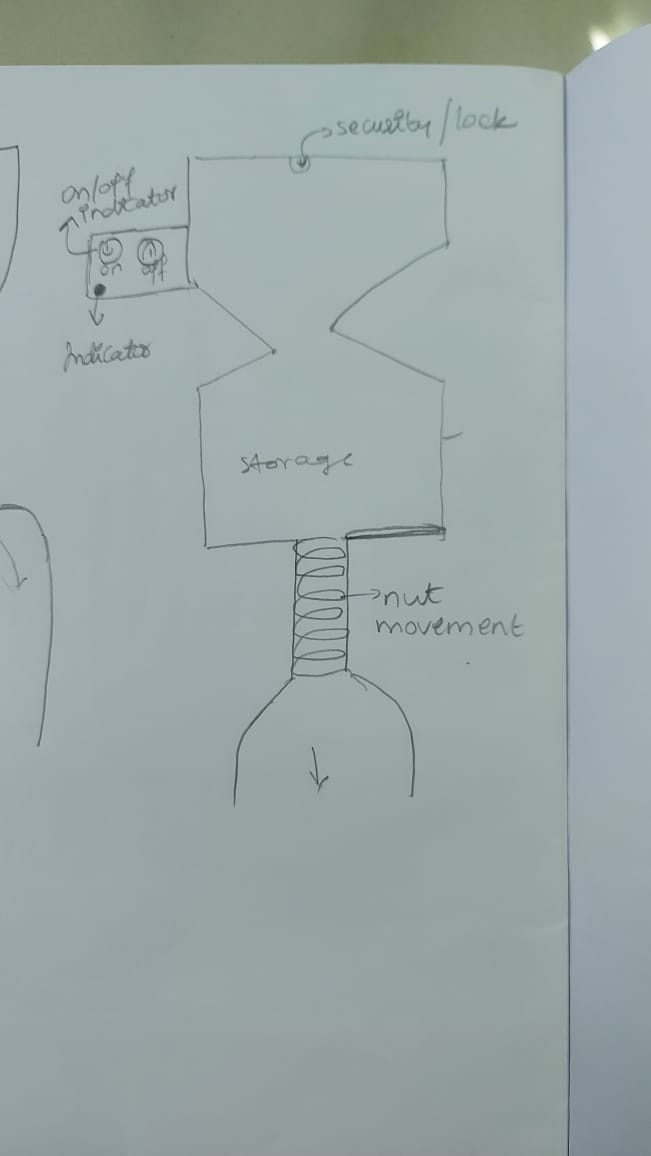 security/lock
on/off
indicator
on off
Indicator
storage
nut
movement